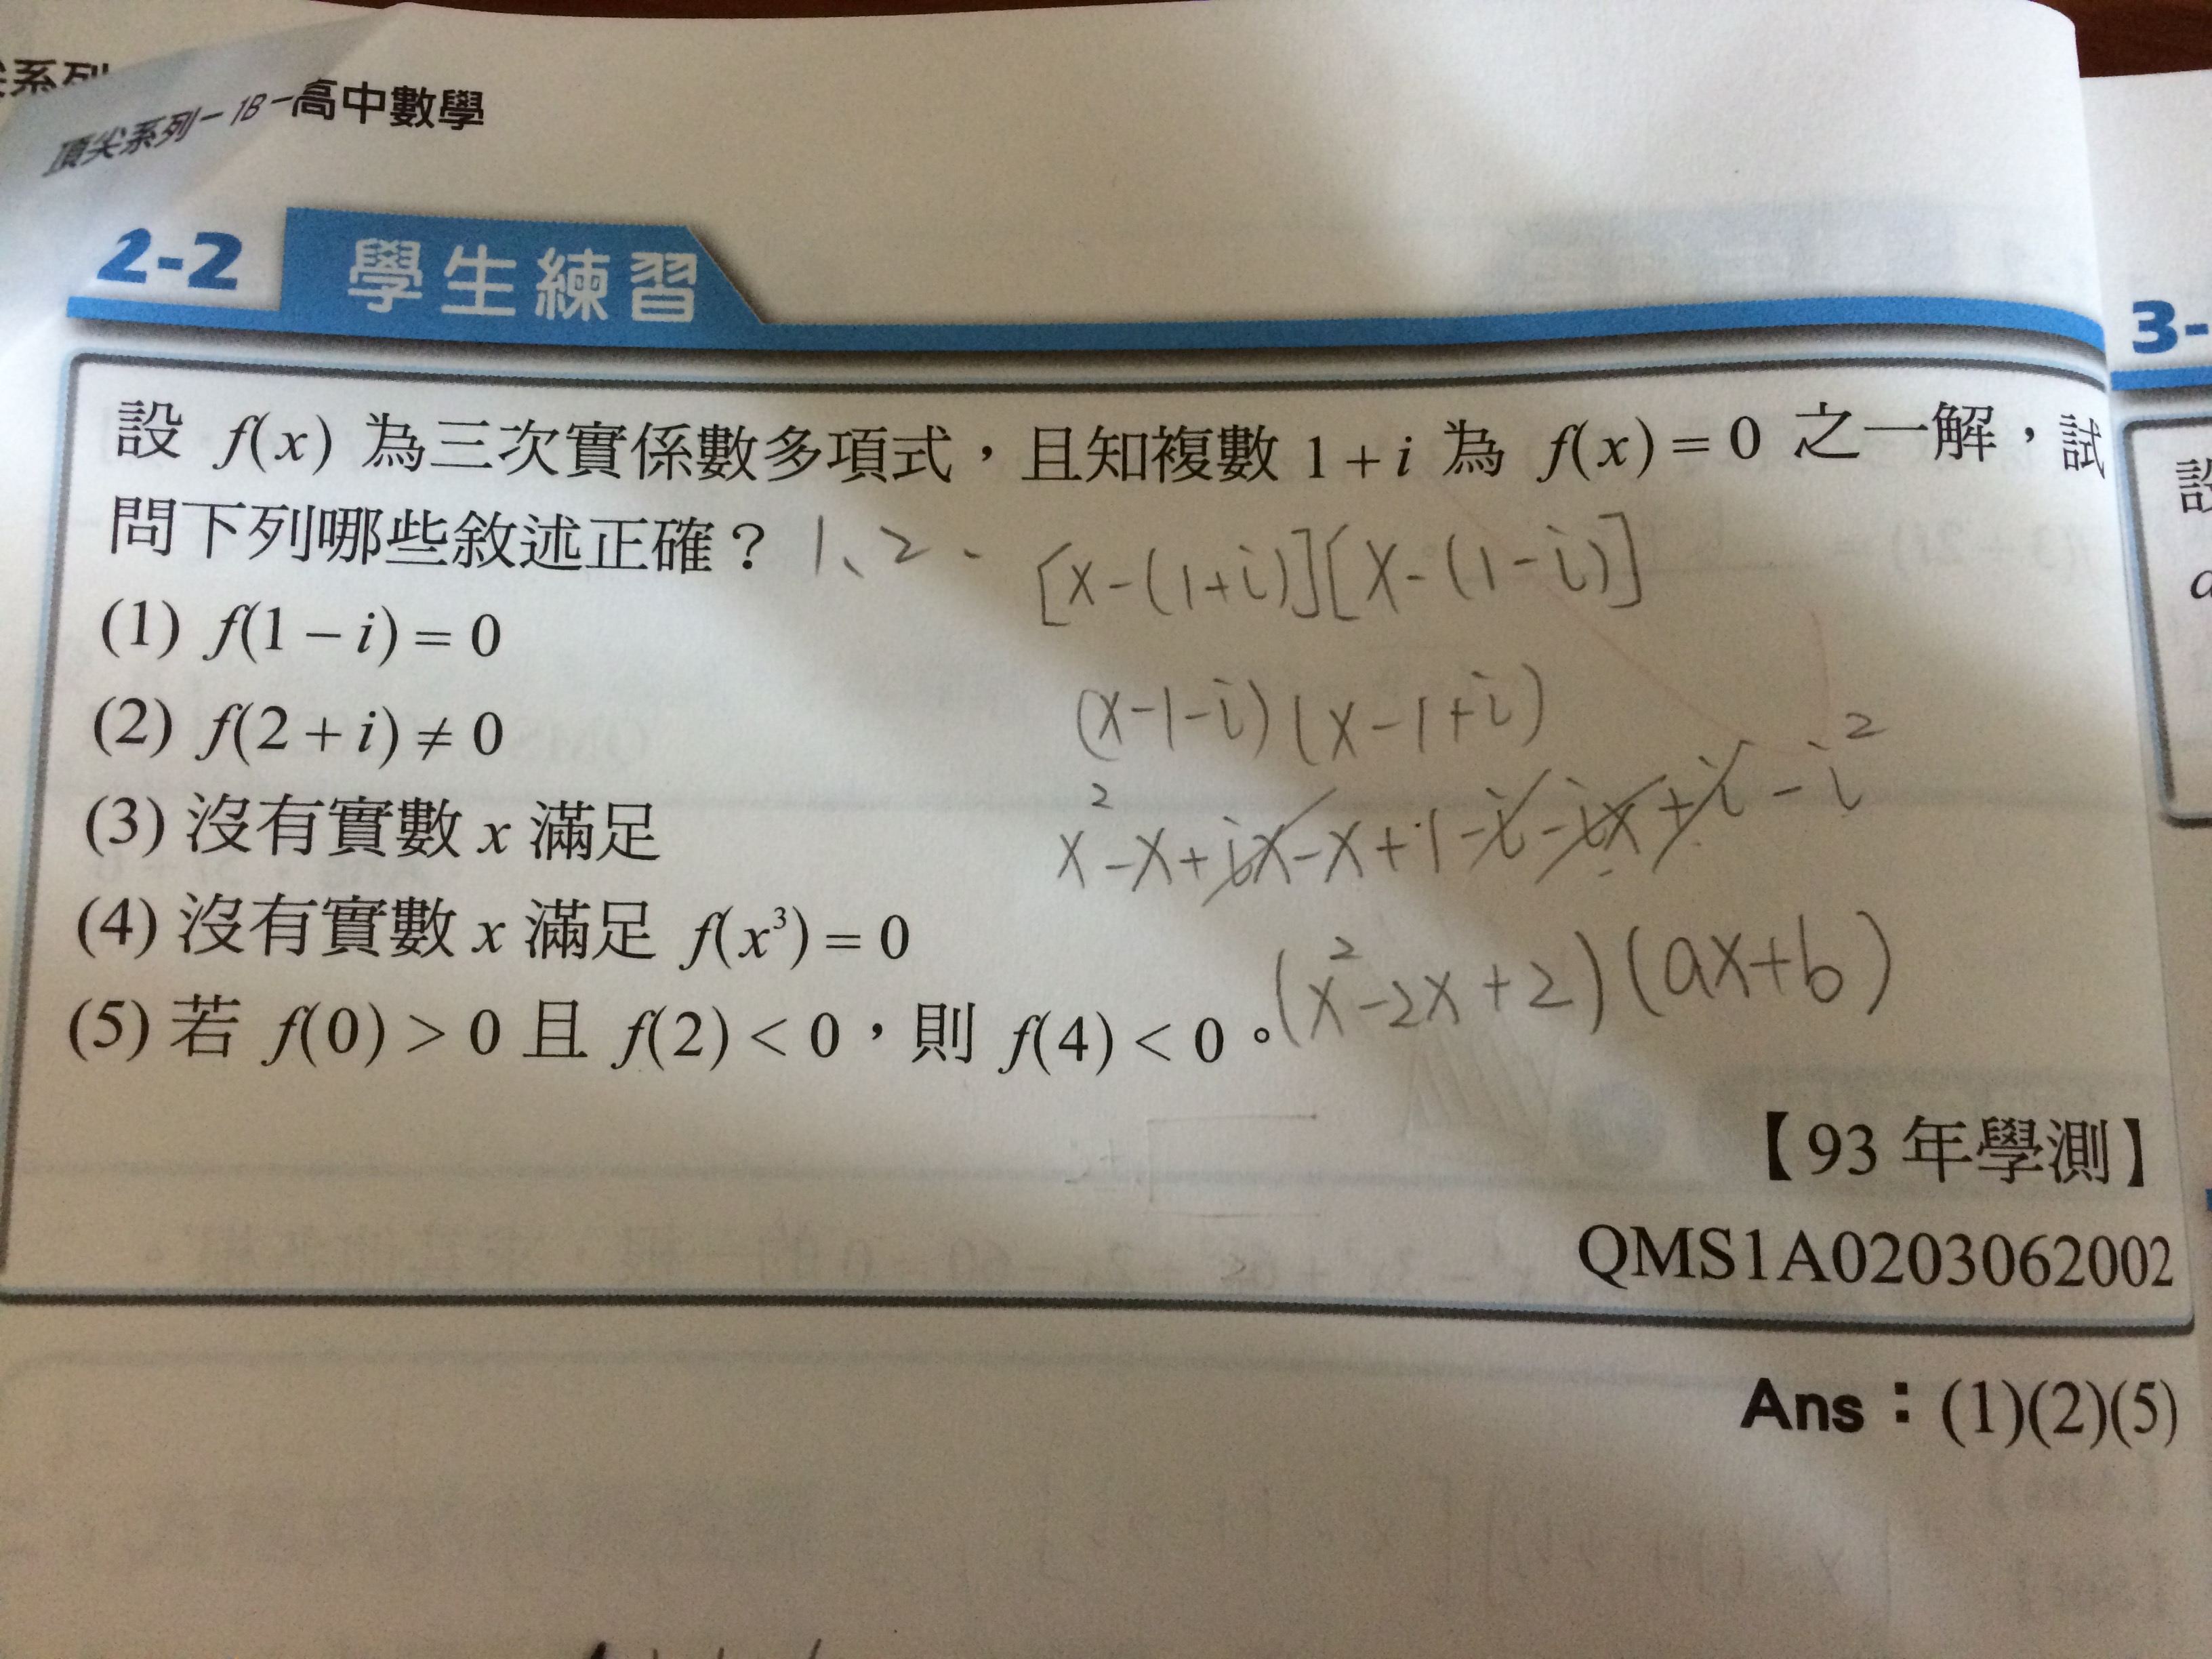 尖系列
頂尖系列－1B－高中數學
2-2 學生練習
3-
設 f(x) 為三次實係數多項式，且知複數 1+i 為 f(x)=0 之一解，試
問下列哪些敘述正確？ 1、2、
[x-(1+i)][x-(1-i)]
(1) f(1−i)=0
(x-1-i)(x-1+i)
(2) f(2+i)≠0
(3) 沒有實數 x 滿足
x²-x+ix-x+1-i-ix+i-i²
(4) 沒有實數 x 滿足 f(x³)=0
(x²-2x+2)(ax+b)
(5) 若 f(0)>0 且 f(2)<0，則 f(4)<0。
【93 年學測】
QMS1A0203062002
Ans：(1)(2)(5)